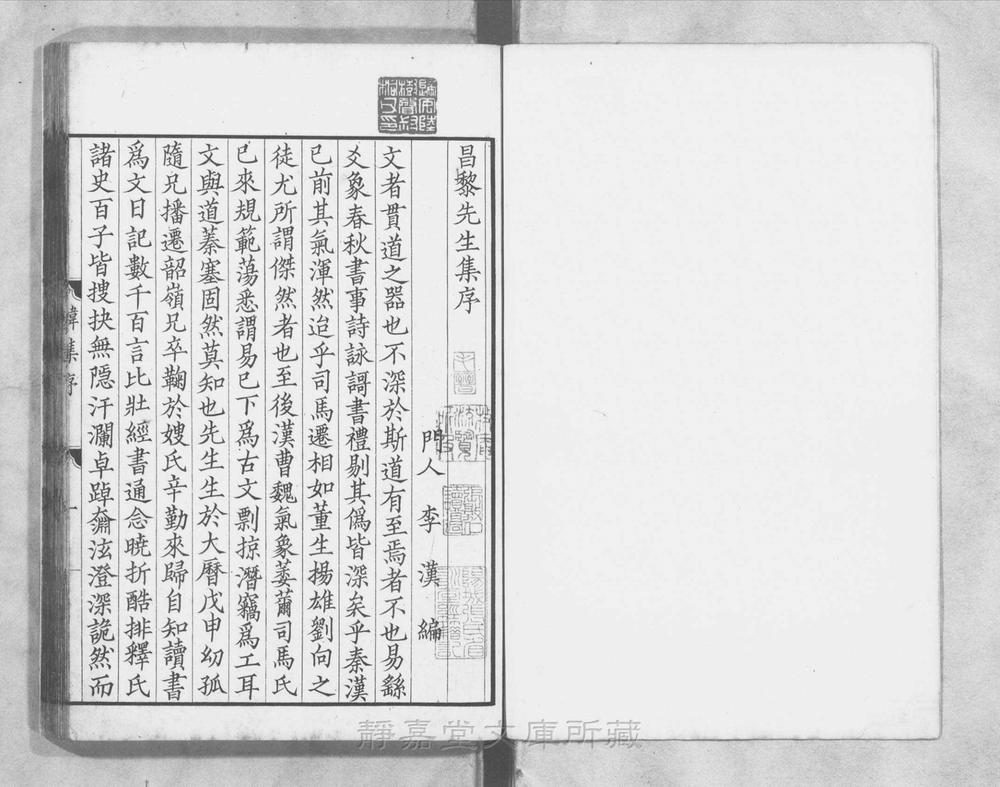 昌黎先生集序
門人李漢編
文者貫道之器也不深於斯道有至焉者不也易繇
爻象春秋書事詩詠謌書禮剔其僞皆深矣乎秦漢
已前其氣渾然迨乎司馬遷相如董生揚雄劉向之
徒尤所謂傑然者也至後漢曹魏氣象萎薾司馬氏
已來規範蕩悉謂易已下爲古文剽掠潛竊爲工耳
文與道蓁塞固然莫知也先生生於大曆戊申幼孤
隨兄播遷韶嶺兄卒鞠於嫂氏辛勤來歸自知讀書
爲文日記數千百言比壯經書通念曉析酷排釋氏
諸史百子皆搜抉無隱汗瀾卓踔奫泫澄深詭然而
韓集序
一
靜嘉堂文庫所藏